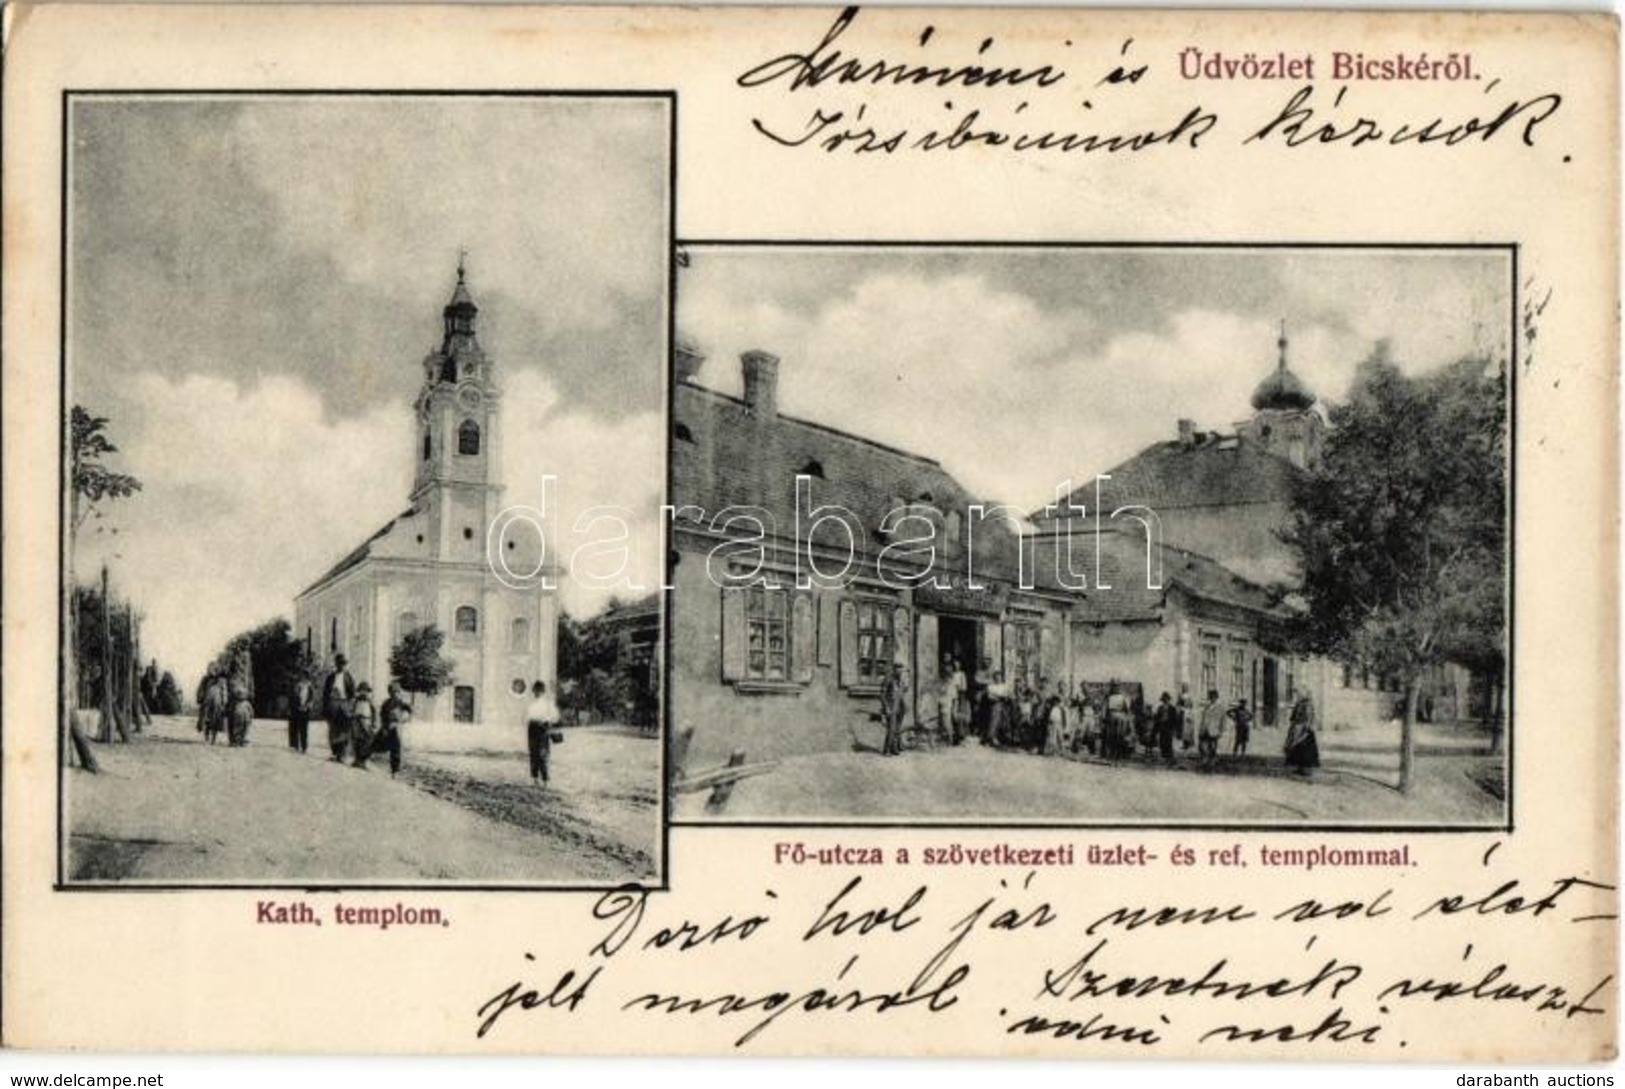 Üdvözlet Bicskéről.
Marinéni és
Józsibácsinak kézcsók.
Kath. templom.
Fő-utcza a szövetkezeti üzlet- és ref. templommal.
Dezső hol jár nem ad élet-
jelt magáról. Szeretnék választ
adni neki.
darabanth
© www.darabanth.com
darabanth auctions